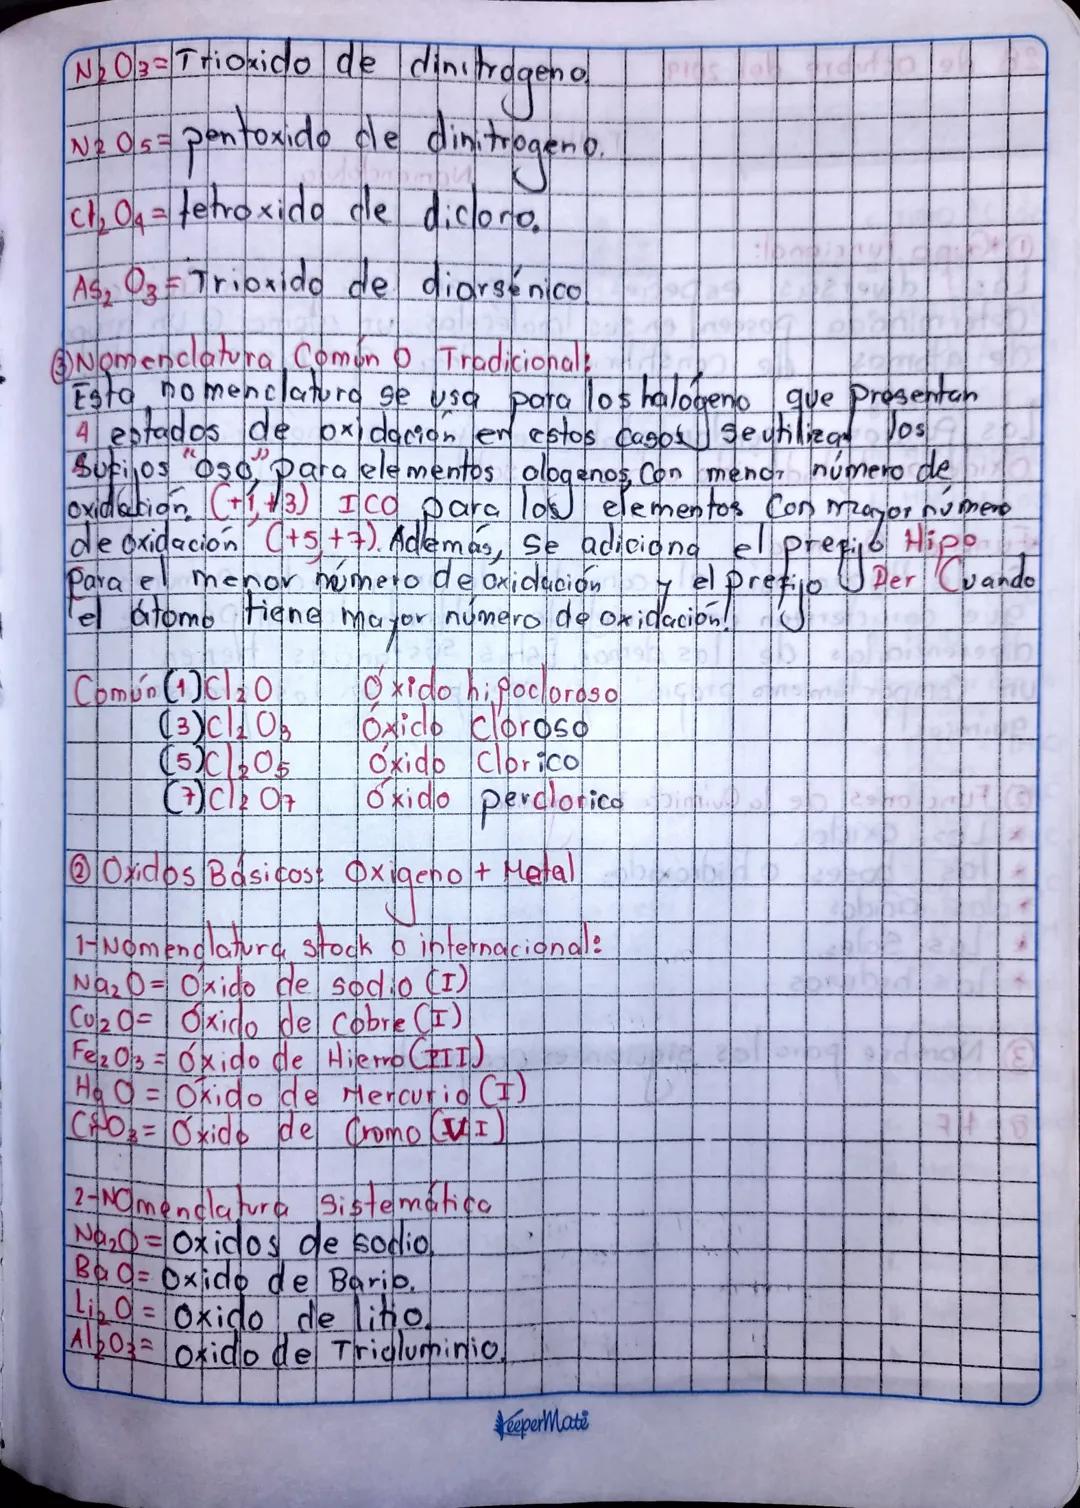 N2O3= Trioxido de dinitrogeno.
N2O5= pentoxido de dinitrogeno.
Cl2O4= tetroxido de dicloro.
As2O3= Trioxido de diarsénico
③ Nomenclatura Común O Tradicional:
Esta nomenclatura se usa para los halógeno que presentan
4 estados de oxidación en estos casos se utilizan los
Sufijos "oso" para elementos ologenos con menor número de
oxidación (+1,+3) ICO para los elementos con mayor número
de oxidación (+5,+7). Además, se adiciona el prefijo Hipo
Para el menor número de oxidación y el prefijo Per Cuando
el átomo tiene mayor número de oxidación.
Común (1) Cl2O Óxido hipocloroso
(3) Cl2O3 Óxido cloroso
(5) Cl2O5 Óxido Clorico
(7) Cl2O7 Óxido perclorico
② Oxidos Básicos: Oxigeno + Metal
1-Nomenclatura stock o internacional:
Na2O= Óxido de sodio (I)
Cu2O= Óxido de Cobre (I)
Fe2O3= Óxido de Hierro (III)
HgO = Óxido de Mercurio (I)
CrO3= Óxido de Cromo (VI)
2-Nomenclatura Sistemática
Na2O= Oxidos de sodio.
BaO= Oxido de Bario.
Li2O= Oxido de litio.
Al2O3= oxido de Trialuminio.
KeeperMate